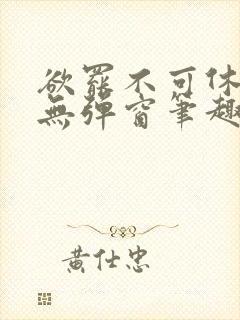 欲罷不可休
無彈窗筆趣
黃仕忠